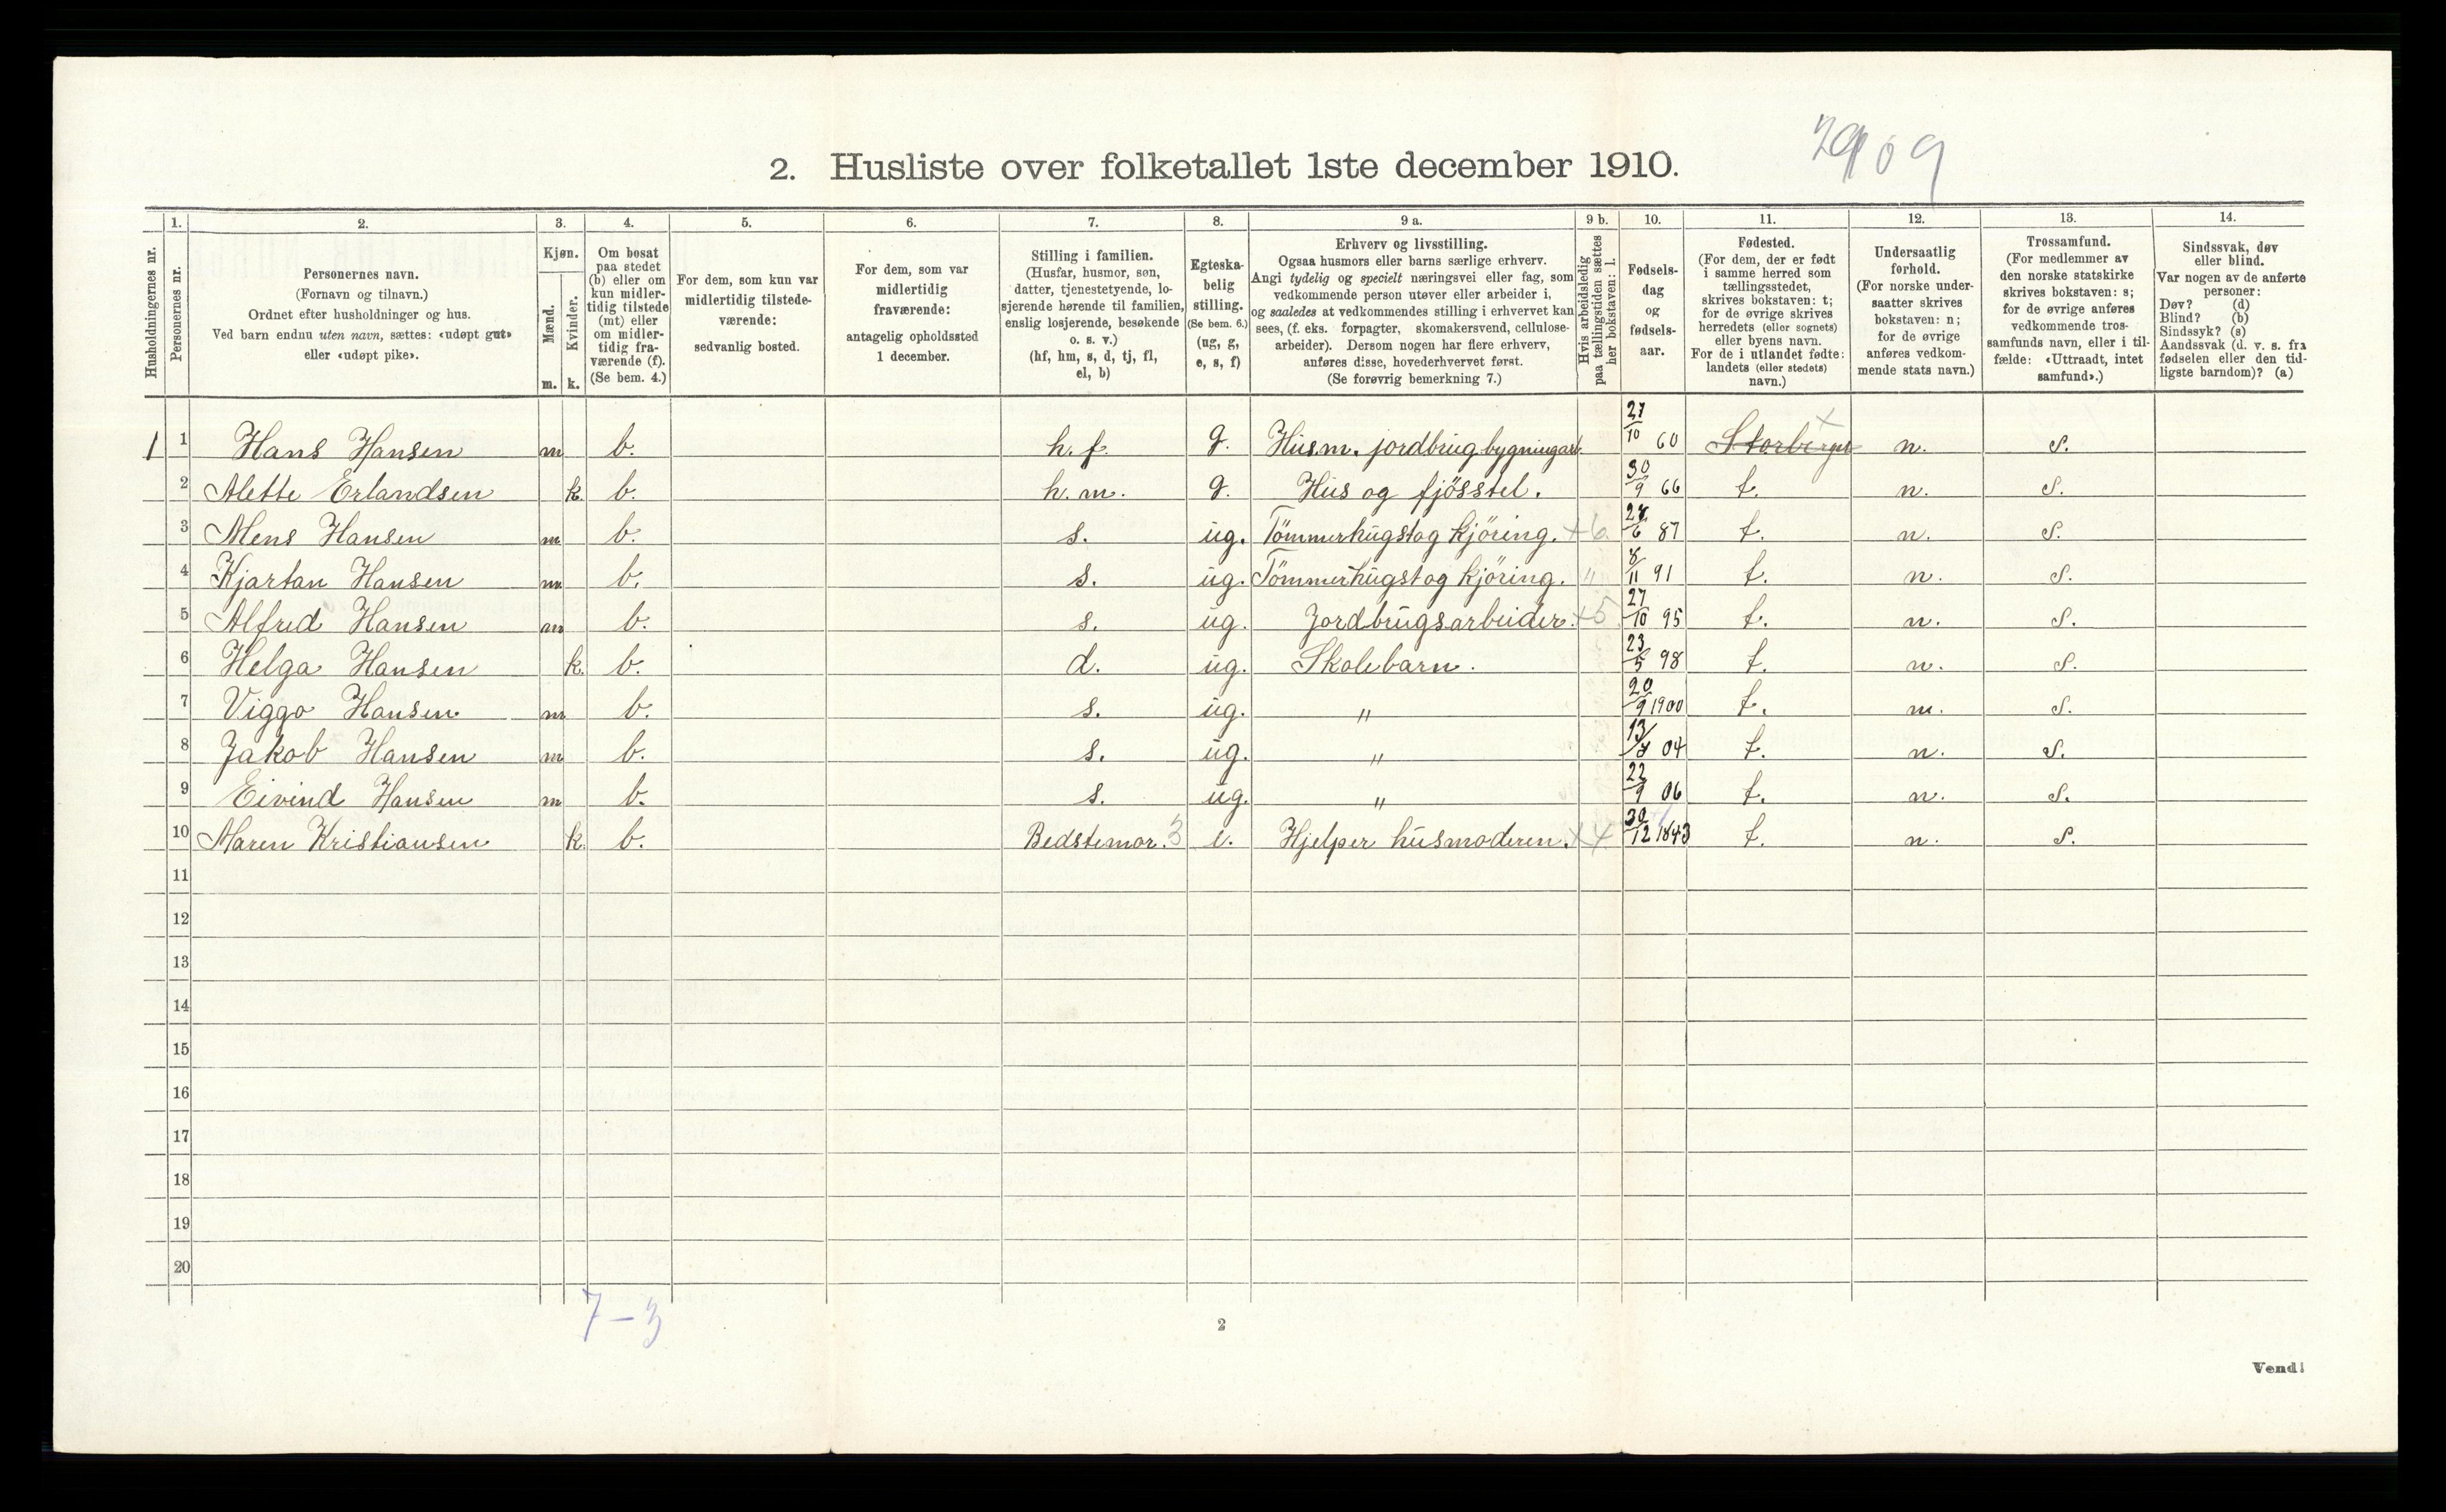 2909
2. Husliste over folketallet 1ste december 1910.
1. 2. 3. 4. 5. 6. 7. 8. 9 a. 9 b. 10. 11. 12. 13. 14.
Husholdningernes nr.
Personernes nr.
Personernes navn.
(Fornavn og tilnavn.)
Ordnet efter husholdninger og hus.
Ved barn endnu uten navn, sættes: «udøpt gut»
eller «udøpt pike».
Kjøn.
Mænd.
Kvinder.
m. k.
Om bosat
paa stedet
(b) eller om
kun midler-
tidig tilstede
(mt) eller
om midler-
tidig fra-
værende (f).
(Se bem. 4.)
For dem, som kun var
midlertidig tilstede-
værende:
sedvanlig bosted.
For dem, som var
midlertidig
fraværende:
antagelig opholdssted
1 december.
Stilling i familien.
(Husfar, husmor, søn,
datter, tjenestetyende, lo-
sjerende hørende til familien,
enslig losjerende, besøkende
o. s. v.)
(hf, hm, s, d, tj, fl,
el, b)
Egteska-
belig
stilling.
(Se bem. 6.)
(ug, g,
e, s, f)
Erhverv og livsstilling.
Ogsaa husmors eller barns særlige erhverv.
Angi tydelig og specielt næringsvei eller fag, som
vedkommende person utøver eller arbeider i,
og saaledes at vedkommendes stilling i erhvervet kan
sees, (f. eks. forpagter, skomakersvend, cellulose-
arbeider). Dersom nogen har flere erhverv,
anføres disse, hovederhvervet først.
(Se forøvrig bemerkning 7.)
Hvis arbeidsledig
paa tællingstiden sættes
her bokstaven: l.
Fødsels-
dag
og
fødsels-
aar.
Fødested.
(For dem, der er født
i samme herred som
tællingsstedet,
skrives bokstaven: t;
for de øvrige skrives
herredets (eller sognets)
eller byens navn.
For de i utlandet fødte:
landets (eller stedets)
navn.)
Undersaatlig
forhold.
(For norske under-
saatter skrives
bokstaven: n;
for de øvrige
anføres vedkom-
mende stats navn.)
Trossamfund.
(For medlemmer av
den norske statskirke
skrives bokstaven: s;
for de øvrige anføres
vedkommende tros-
samfunds navn, eller i til-
fælde: «Uttraadt, intet
samfund».)
Sindssvak, døv
eller blind.
Var nogen av de anførte
personer:
Døv? (d)
Blind? (b)
Sindssyk? (s)
Aandssvak (d. v. s. fra
fødselen eller den tid-
ligste barndom)? (a)
1 1 Hans Hansen m b. h. f. g. Husm. jordbrug bygningarb. 27/10 60 n. S.
2 Alette Erlandsen k. b. h. m. g. Hus og fjösstel. 30/9 66 t. n. S.
3 Mens Hansen m b. s. ug. Tömmerhugst og kjöring. +6 6 87 t. n. S.
4 Kjartan Hansen m b. s. ug. Tömmerhugst og kjöring. " 8/11 91 t. n. S.
5 Alfred Hansen m b. s. ug. Jordbrugsarbeider. +5 27/10 95 t. n. S.
6 Helga Hansen k. b. d. ug. Skolebarn. 23/5 98 t. n. S.
7 Viggo Hansen m b. s. ug. " 20/9 1900 t. n. S.
8 Jakob Hansen m b. s. ug. " 13/ 04 t. n. S.
9 Eivind Hansen m b. s. ug. " 22/9 06 t. n. S.
10 Maren Kristiansen k. b. Bedstemor. 3 e. Hjelper husmoderen. +4 30/12 1843 t. n. S.
11
12
13
14
15
16
17
18
19
20
7-3
2
Vend!